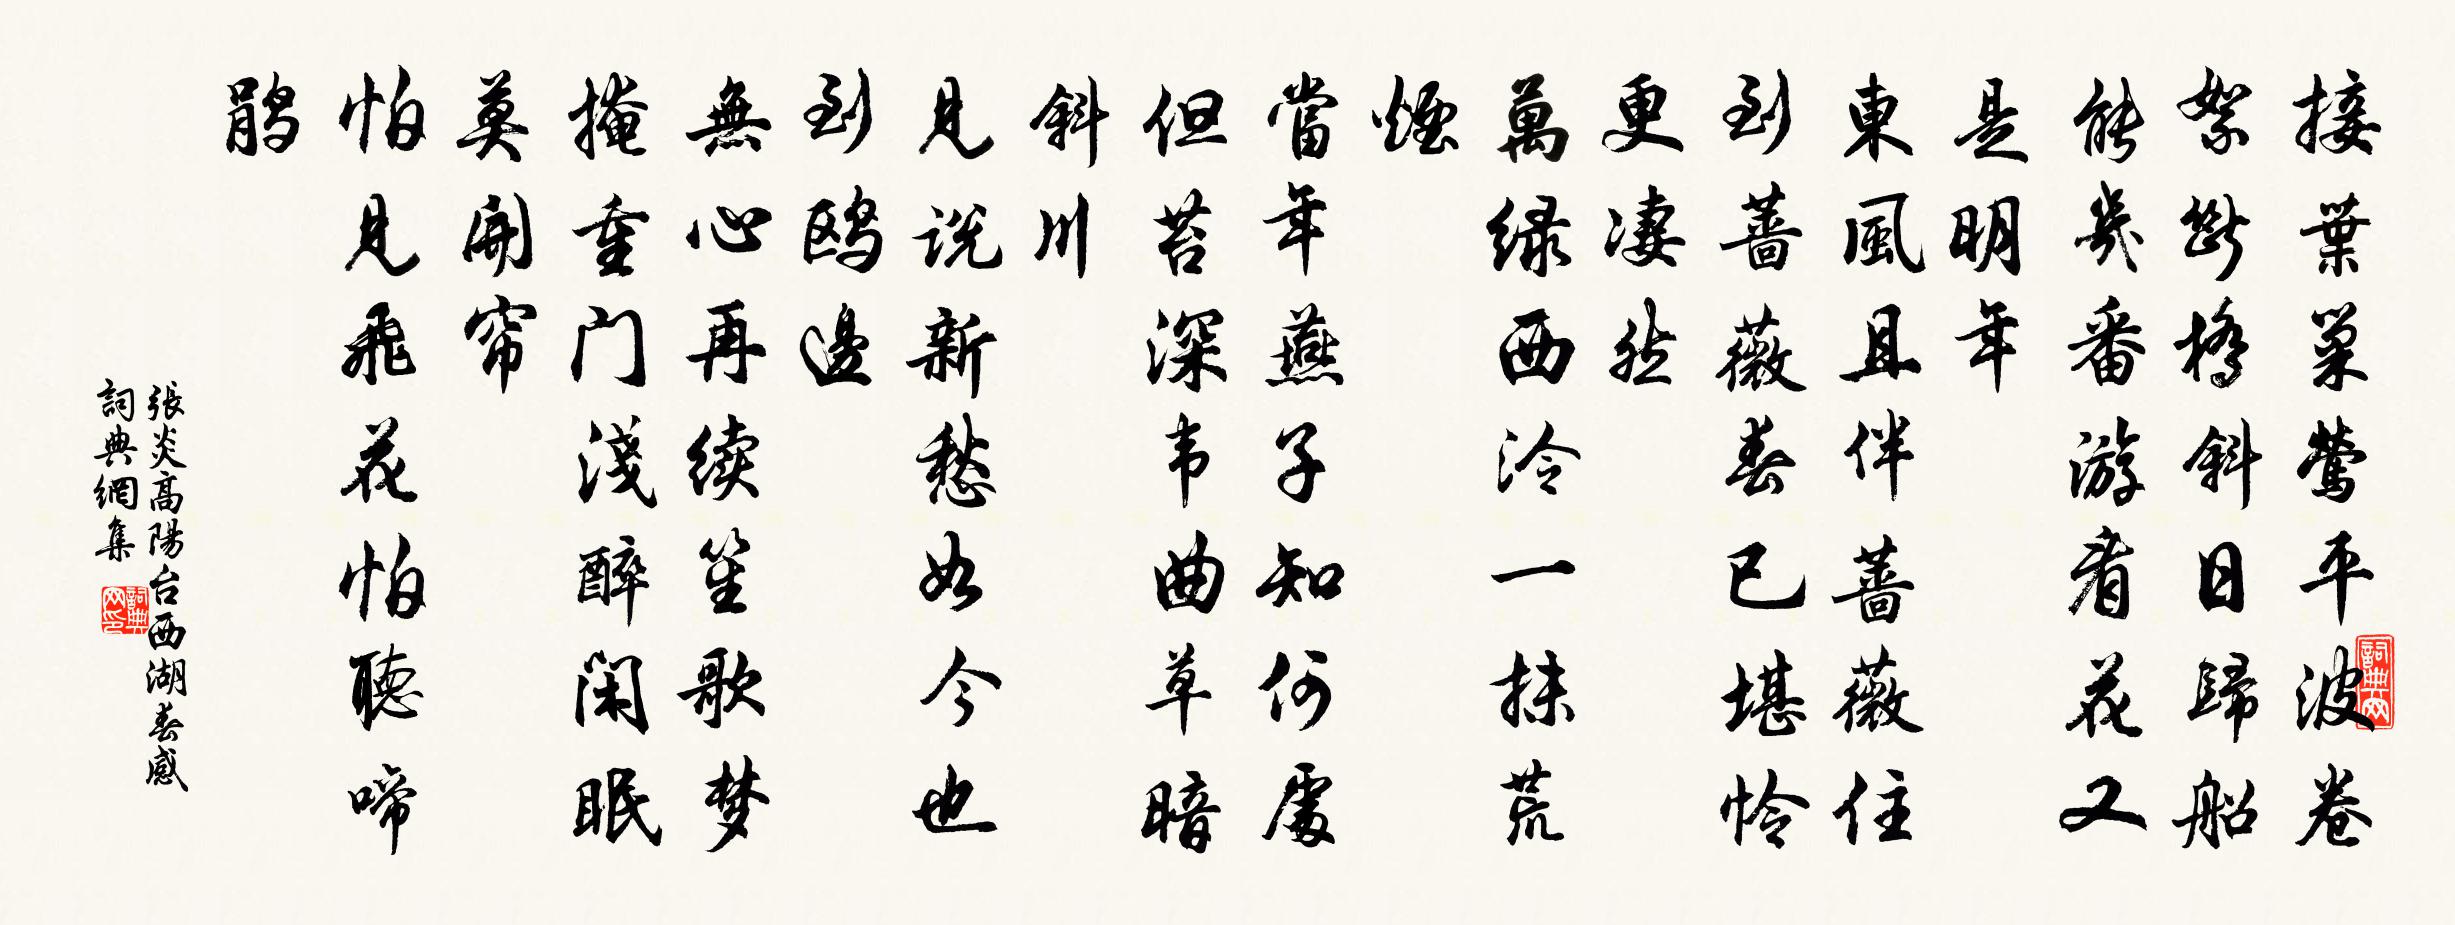 接葉巢鶯平波卷
絮斷橋斜日歸船
能幾番游看花又
是明年
東風且伴薔薇住
到薔薇春已堪怜
更凄然
萬绿西泠一抹荒
煙
當年燕子知何處
但苔深韦曲草暗
斜川
見説新愁如今也
到鷗邊
無心再续笙歌梦
掩重门淺醉闲眠
莫開帘
怕見飛花怕聽啼
鵑
張炎高陽台西湖春感
詞典網集
詞典网
詞典网印